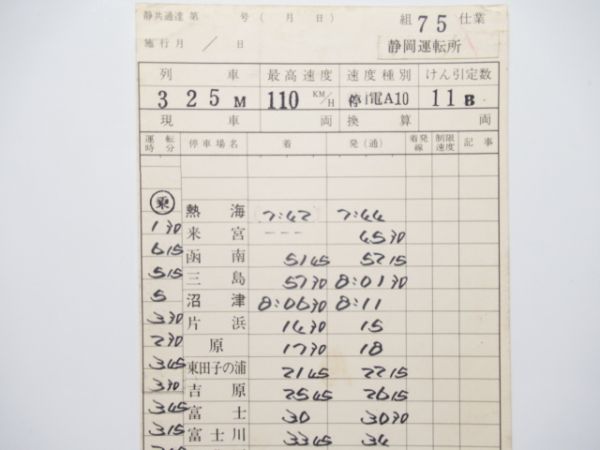 静共通達 第 号 ( 月 日) 組 75 仕業
施行月 / 日 静岡運転所
列 車 最高速度 速度種別 けん引定数
325M 110 KM/H 停電A10 11B
現 車 両 換 算 両
運転時分 停車場名 着 発(通) 着発線 制限速度 記事
乗 熱海 7:42 7:44
1 30 来宮 --- 45 30
6 15 函南 51 45 52 15
5 15 三島 57 30 8:01 30
5 沼津 8:06 30 8:11
3 30 片浜 14 30 15
2 30 原 17 30 18
3 45 東田子の浦 21 45 22 15
3 30 吉原 25 45 26 15
3 45 富士 30 30 30
3 15 富士川 33 45 34